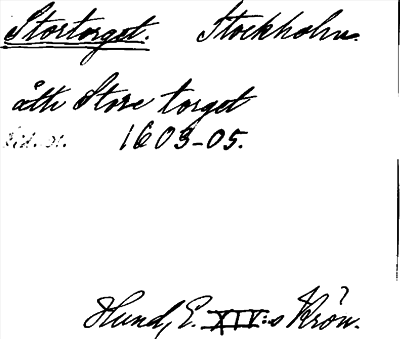 Stortorget. Stockholm.
åth Store torget
1603-05.
Hund, E. XIV:s Krön.